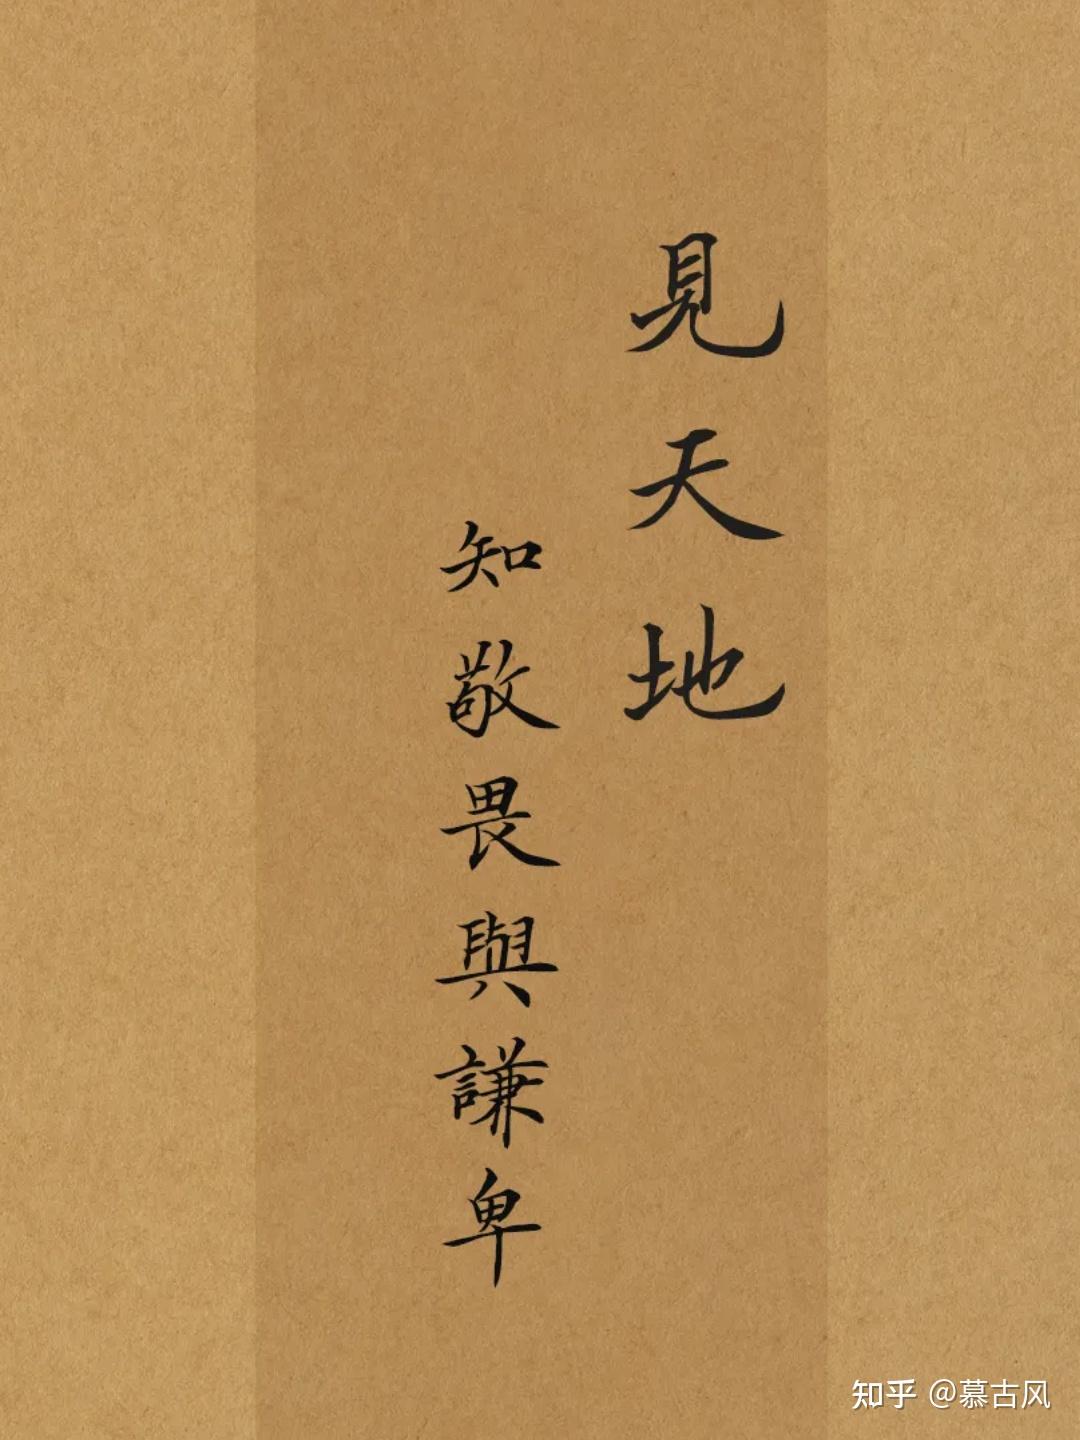 見天地
知敬畏與謙卑
知乎 @慕古风